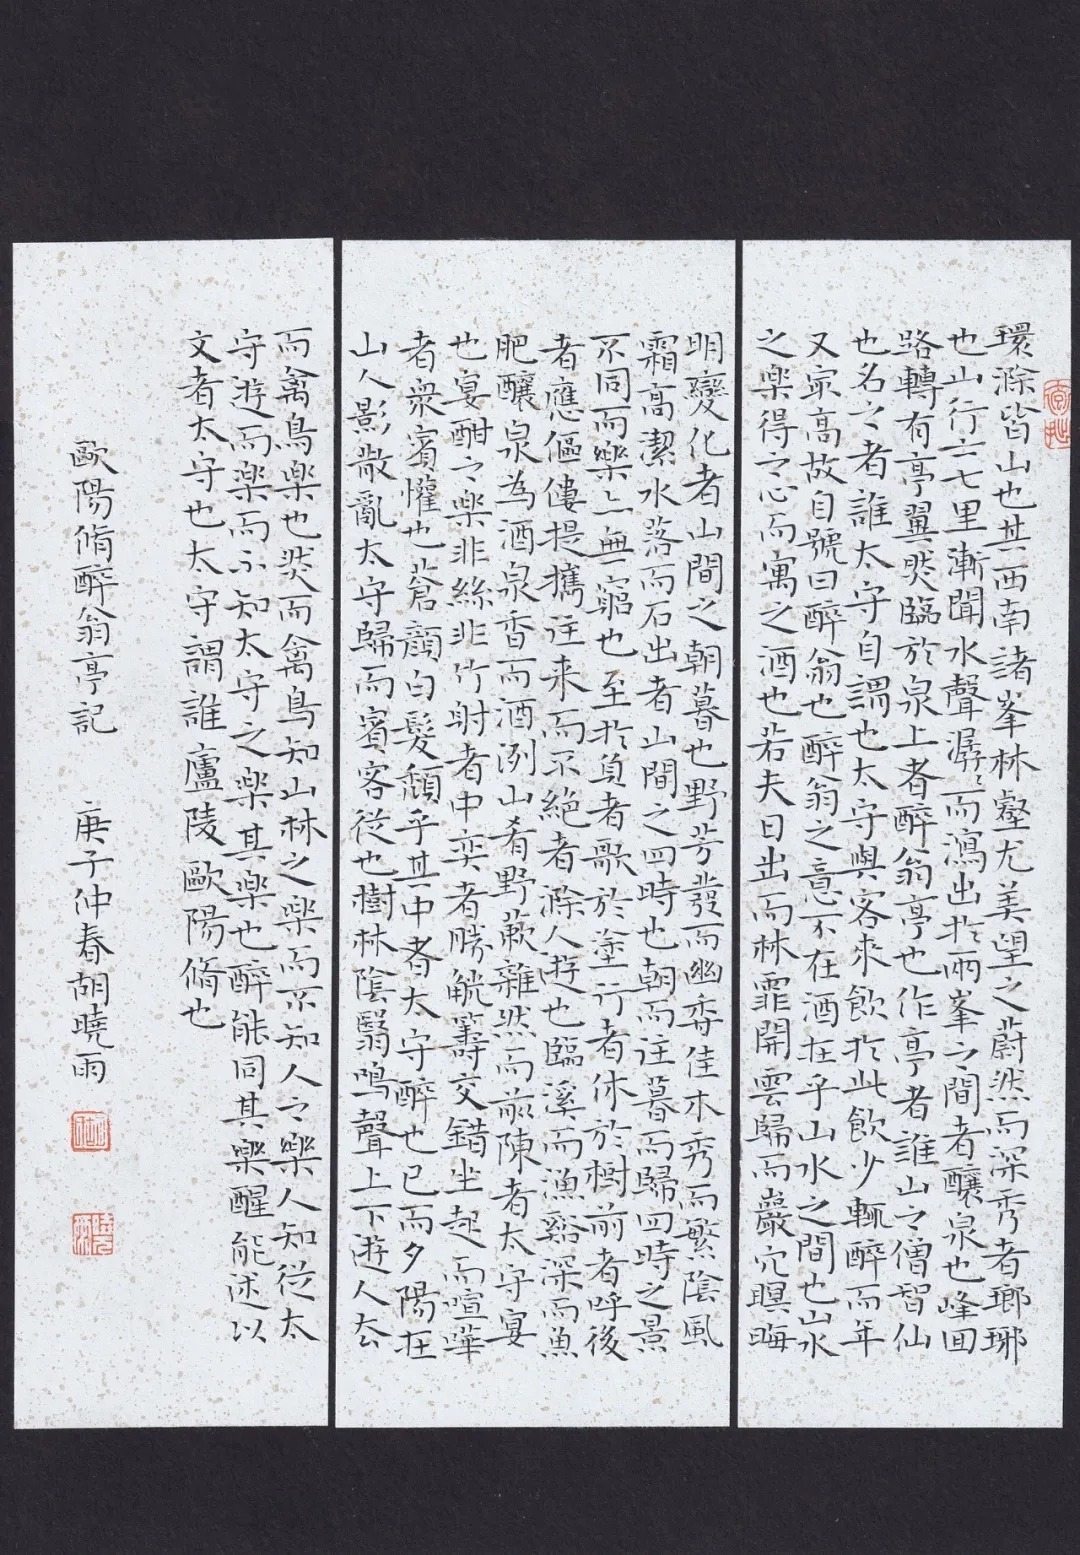 環滁皆山也其西南諸峯林壑尤美望之蔚然而深秀者瑯琊
也山行六七里漸聞水聲潺〻而瀉出於兩峯之間者釀泉也峰回
路轉有亭翼然臨於泉上者醉翁亭也作亭者誰山之僧智仙
也名之者誰太守自謂也太守與客來飲於此飲少輒醉而年
又㝡高故自號曰醉翁也醉翁之意不在酒在乎山水之間也山水
之樂得之心而寓之酒也若夫日出而林霏開雲歸而巖穴暝晦
明變化者山間之朝暮也野芳發而幽香佳木秀而繁陰風
霜高潔水落而石出者山間之四時也朝而往暮而歸四時之景
不同而樂亦無窮也至於負者歌於塗行者休於樹前者呼後
者應傴僂提攜往来而不絕者滁人遊也臨溪而漁谿深而魚
肥釀泉為酒泉香而酒洌山肴野蔌雜然而前陳者太守宴
也宴酣之樂非絲非竹射者中奕者勝觥籌交錯坐起而喧譁
者衆賓懽也蒼顏白髮頹乎其中者太守醉也已而夕陽在
山人影散亂太守歸而賓客從也樹林陰翳鳴聲上下遊人去
而禽鳥樂也然而禽鳥知山林之樂而不知人之樂人知從太
守遊而樂而不知太守之樂其樂也醉能同其樂醒能述以
文者太守也太守謂誰廬陵歐陽脩也
歐陽脩醉翁亭記 庚子仲春胡曉雨